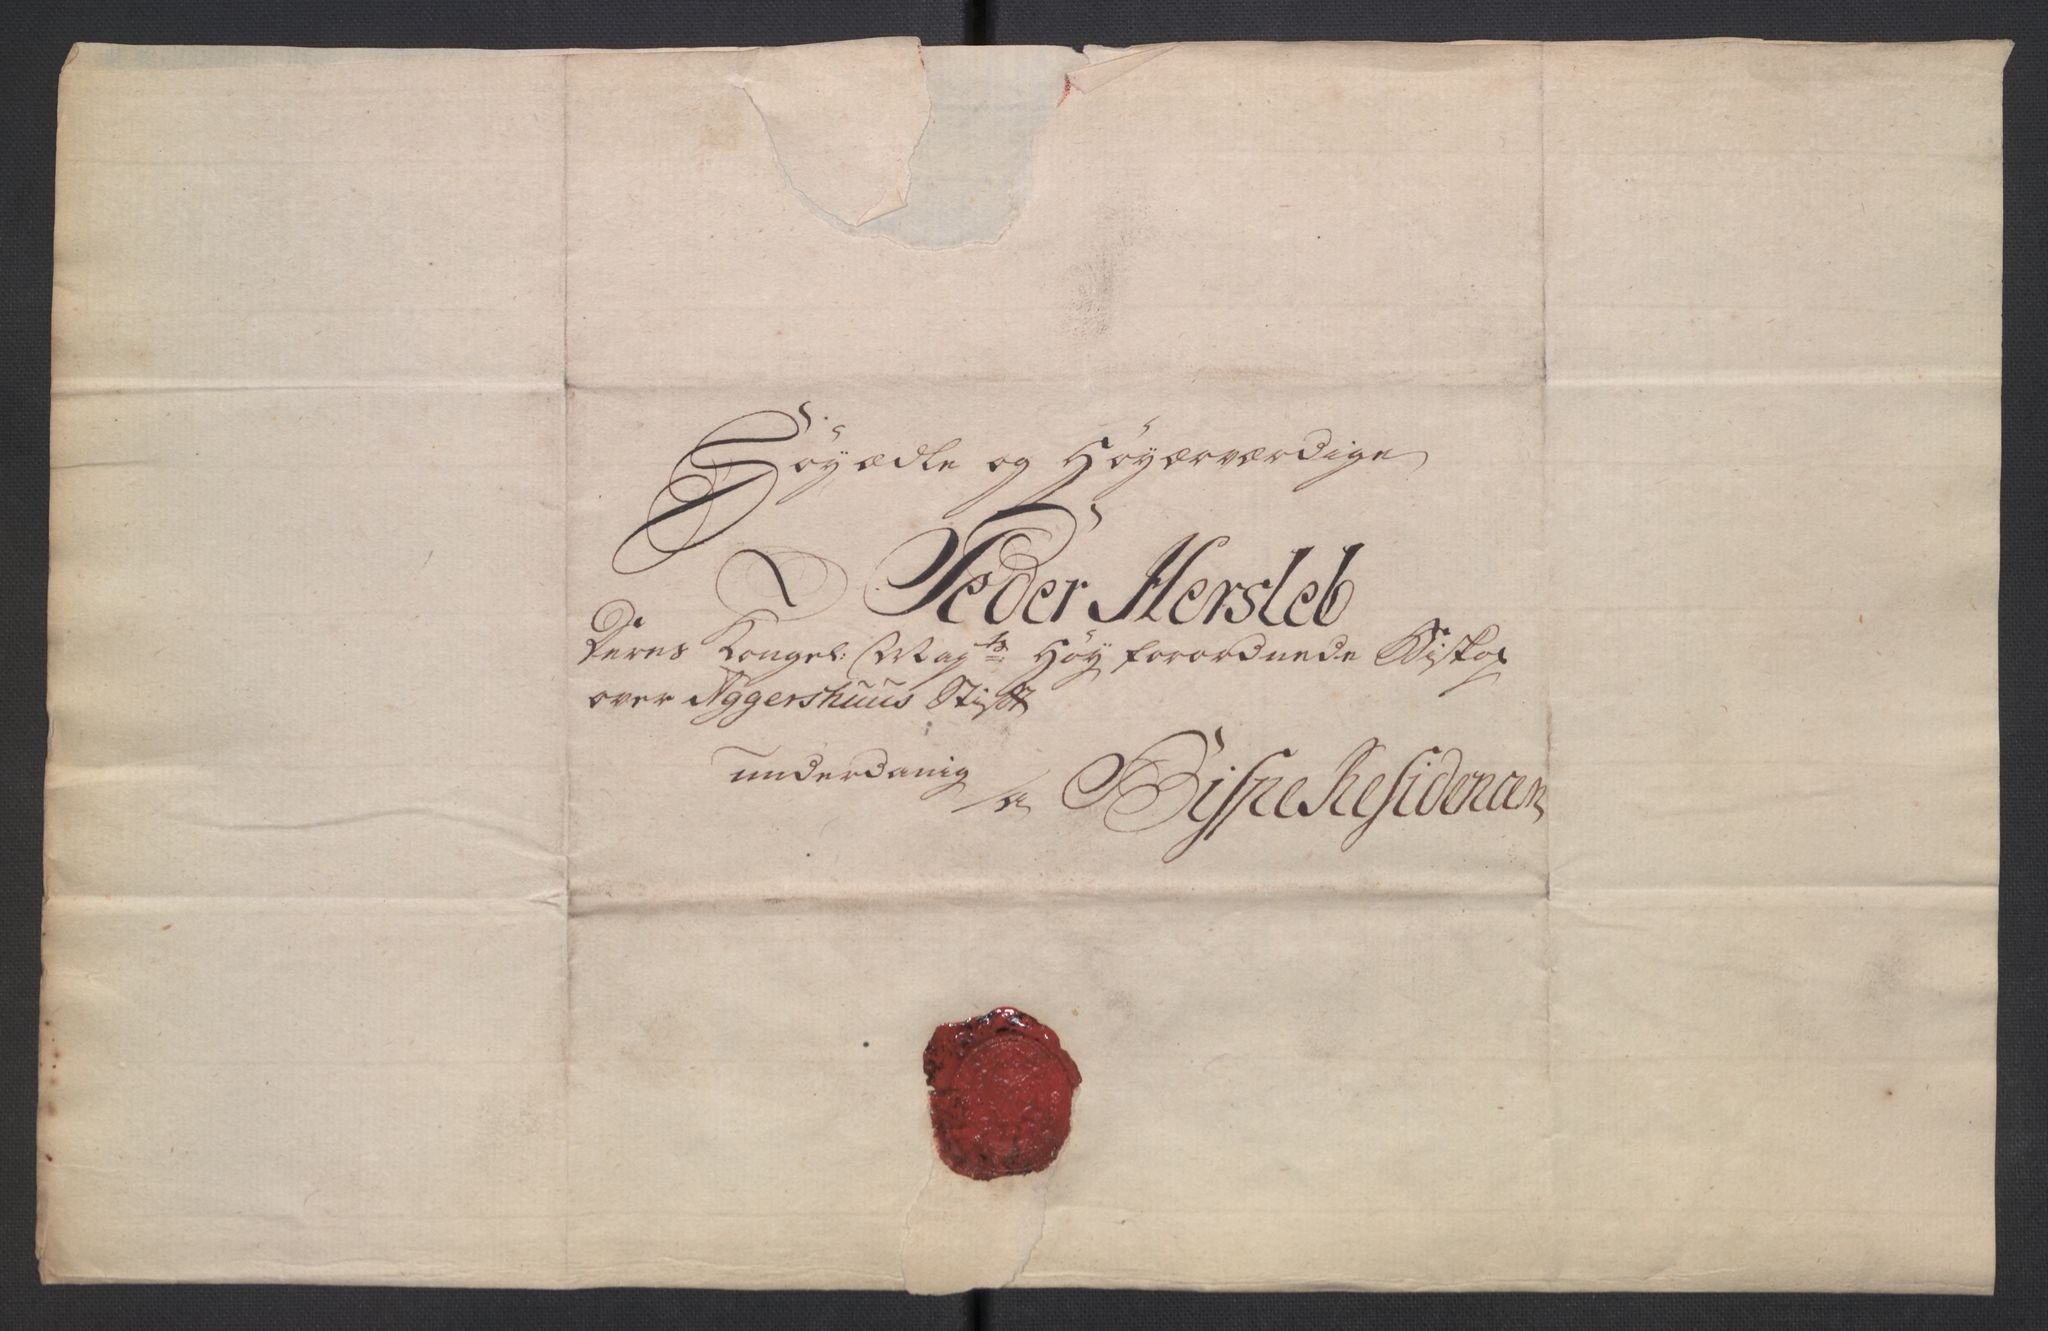 Höyædle og Höyærværdige
Peder Hersleb
Deres Kongel: May.ts Höy forordnede Biskop
over Aggershuus Stifft
underdanig
a Bispe Residencen